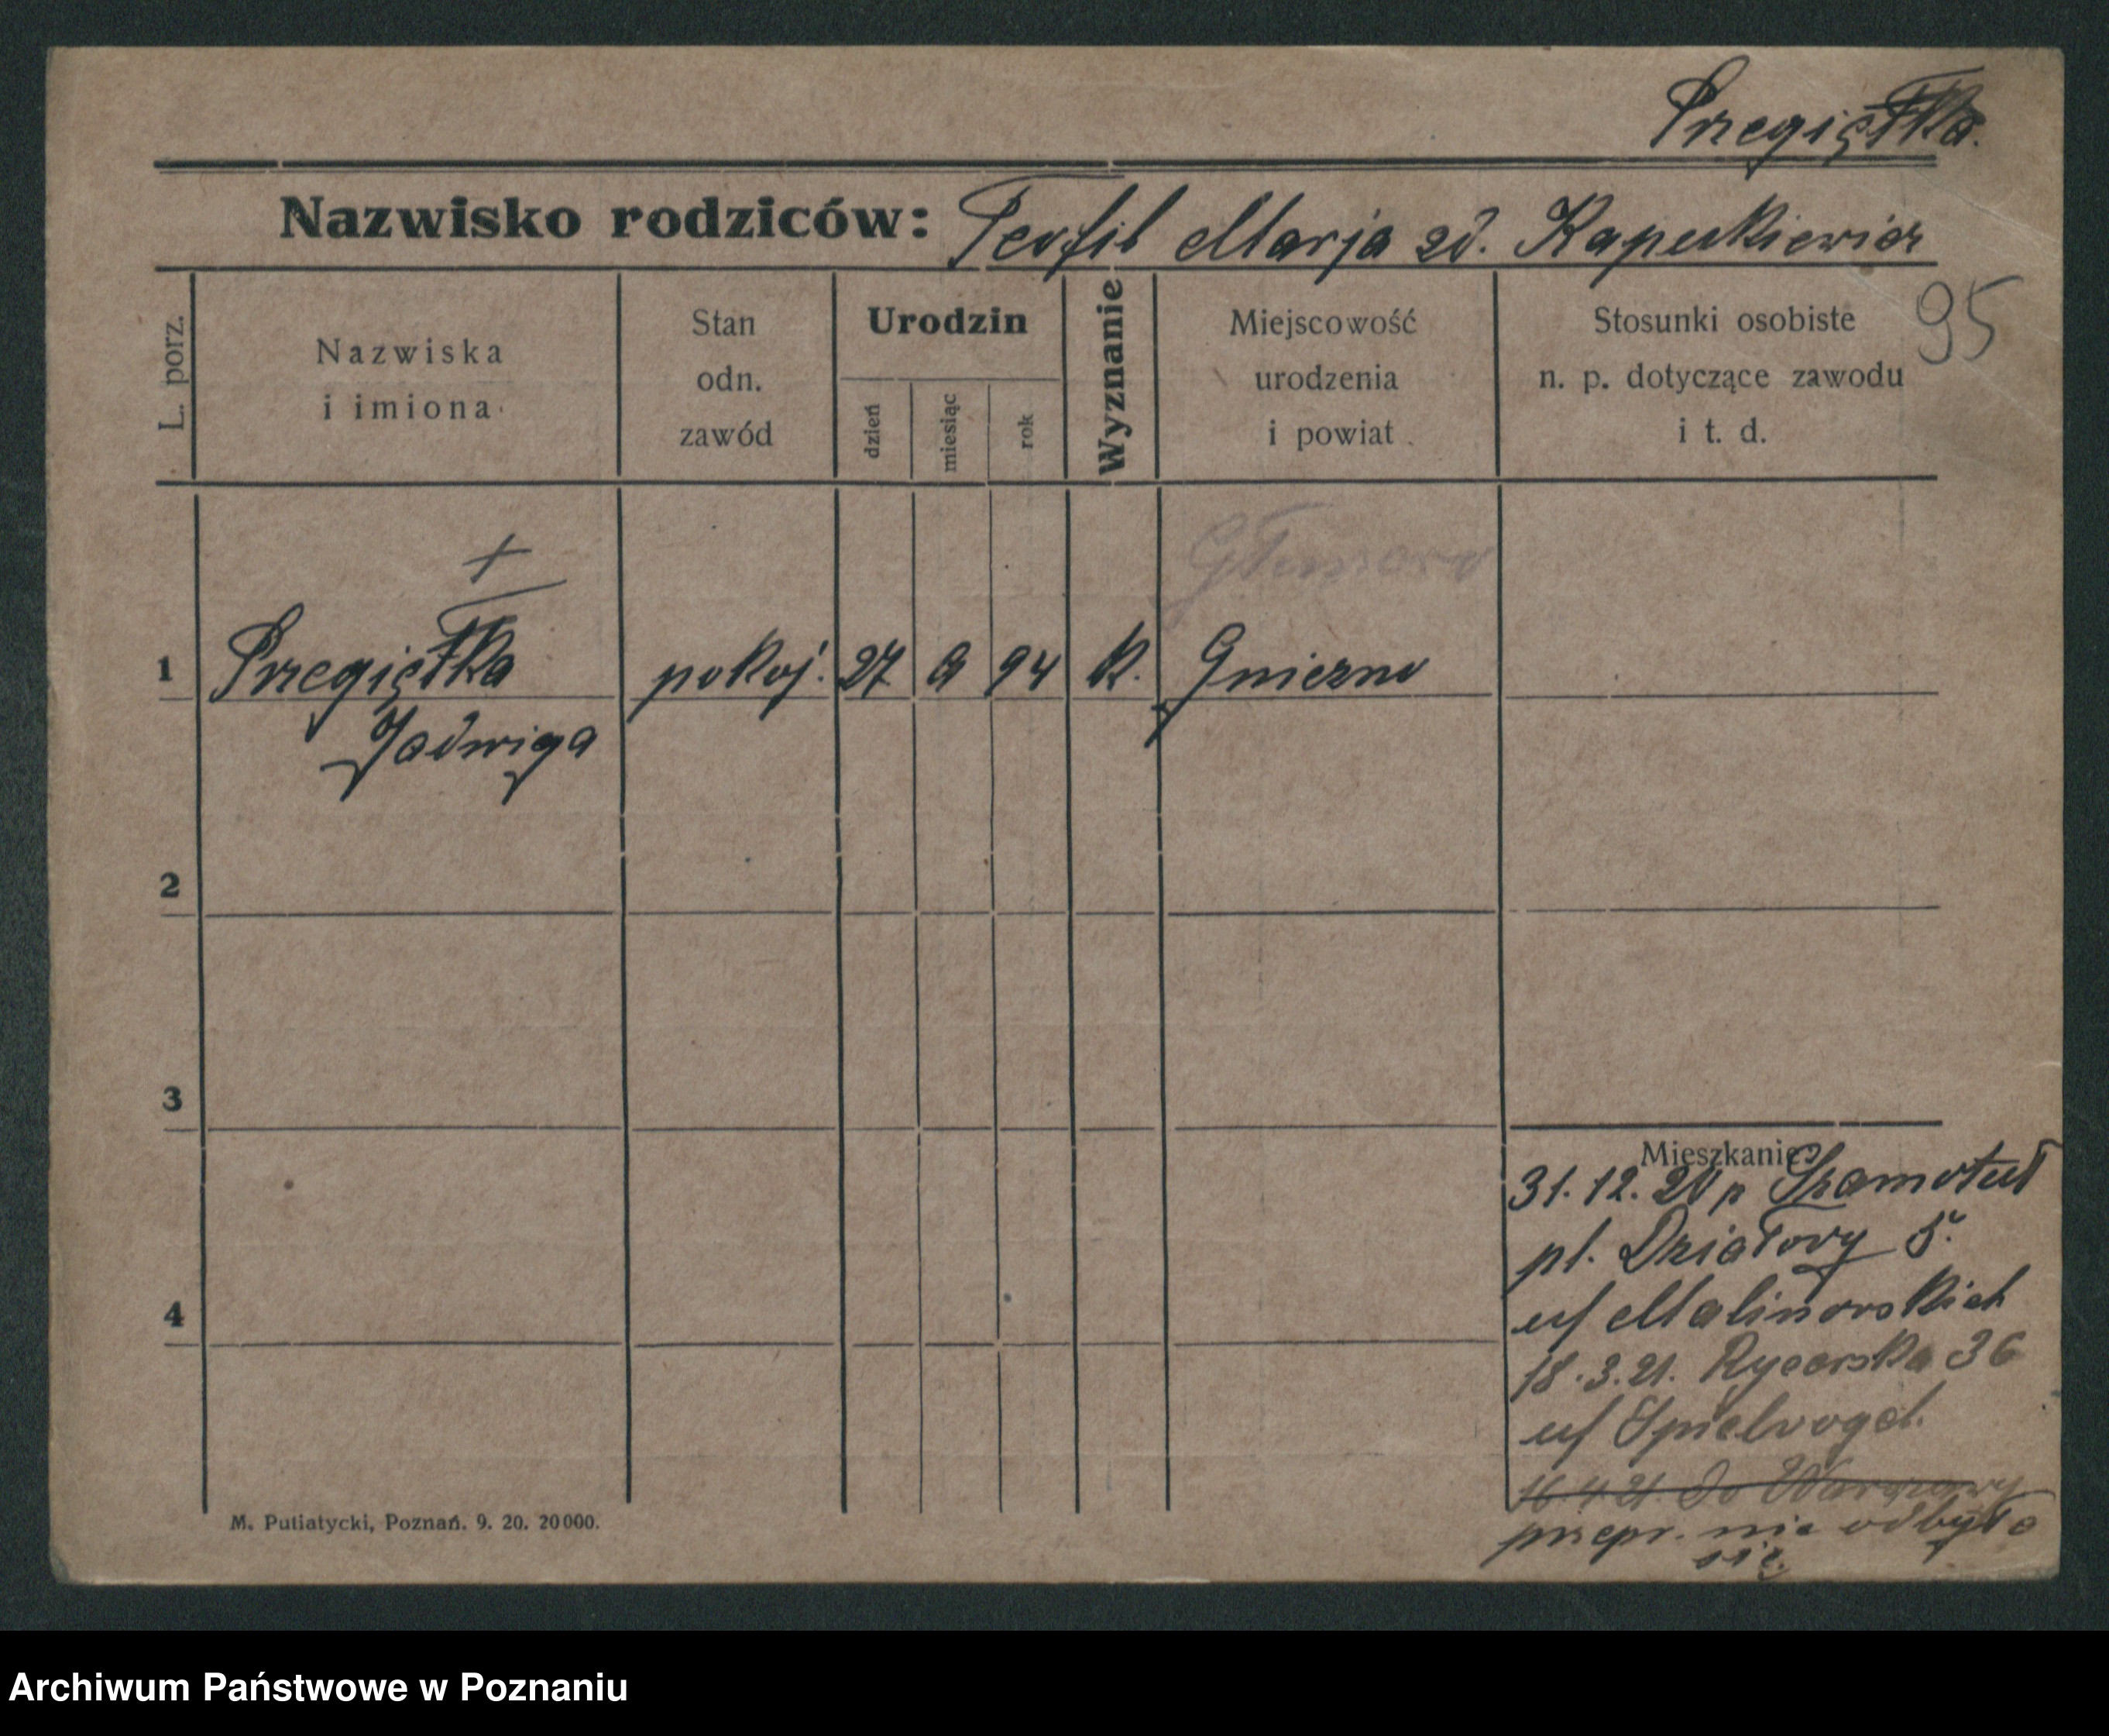 Przegiętka.
Nazwisko rodziców: Teofil Marja zd. Kapuśkiewicz
95
L. porz.
Nazwiska i imiona
Stan odn. zawód
Urodzin
dzień
miesiąc
rok
Wyznanie
Miejscowość urodzenia i powiat
Stosunki osobiste n. p. dotyczące zawodu i t. d.
+
1 Przegiętka pokoj. 27 9 94 k. Gniezno
Jadwiga
2
3
4
Mieszkanie
31.12.20 p Szamotuł
pl. Działowy 5.
u/ Malinowskich
18.3.21. Rycerska 36
u/ Spielvogel.
16.4.21. Do Warszawy
przepr. nie odbyła
się.
M. Putiatycki, Poznań. 9. 20. 20000.
Archiwum Państwowe w Poznaniu